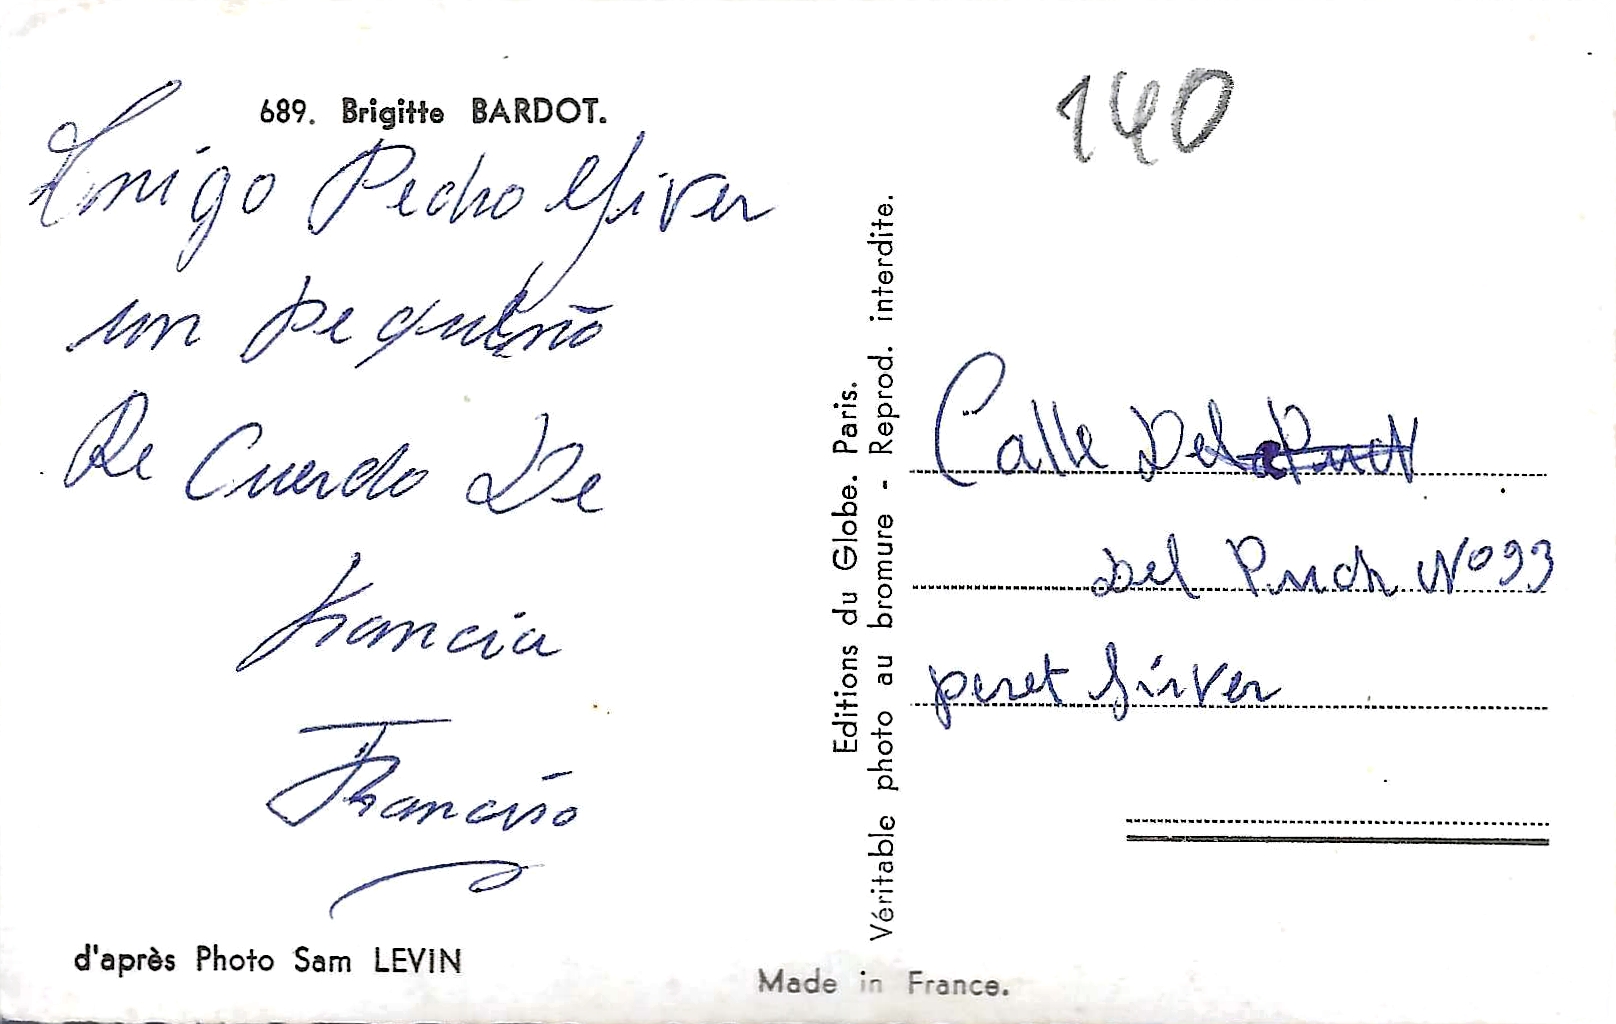 689. Brigitte BARDOT.
Amigo Pedro Girver
un pequeño
Re Cuerdo De
francia
Francisco
d'après Photo Sam LEVIN
Editions du Globe. Paris.
Véritable photo au bromure - Reprod. interdite.
Made in France.
140
Calle Del
Del Puch Nº 93
peret Girver